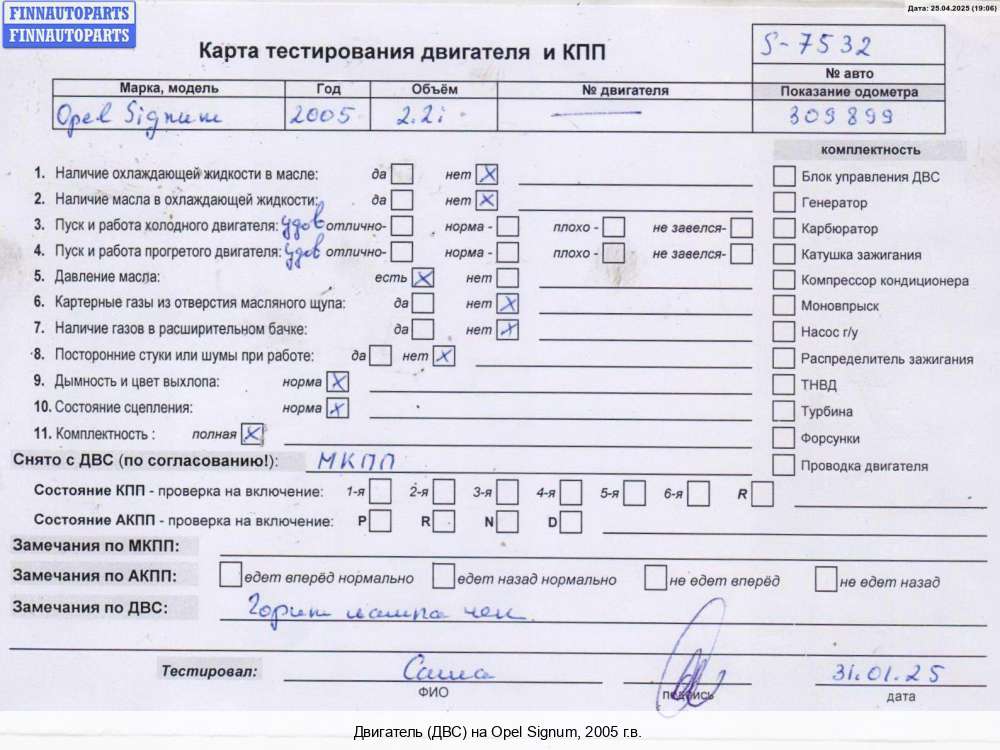 FINNAUTOPARTS
FINNAUTOPARTS
Дата: 25.04.2025 (19:06)
Карта тестирования двигателя и КПП
S-7532
№ авто
Марка, модель Год Объём № двигателя Показание одометра
Opel Signum 2005 2.2i 309899
комплектность
1. Наличие охлаждающей жидкости в масле: да нет X Блок управления ДВС
2. Наличие масла в охлаждающей жидкости: да нет X Генератор
3. Пуск и работа холодного двигателя: удов отлично- норма - плохо - не завелся- Карбюратор
4. Пуск и работа прогретого двигателя: удов отлично- норма - плохо - не завелся- Катушка зажигания
5. Давление масла: есть X нет Компрессор кондиционера
6. Картерные газы из отверстия масляного щупа: да нет X Моновпрыск
7. Наличие газов в расширительном бачке: да нет X Насос г/у
8. Посторонние стуки или шумы при работе: да нет X Распределитель зажигания
9. Дымность и цвет выхлопа: норма X ТНВД
10. Состояние сцепления: норма X Турбина
11. Комплектность : полная X Форсунки
Снято с ДВС (по согласованию!): МКПП Проводка двигателя
Состояние КПП - проверка на включение: 1-я 2-я 3-я 4-я 5-я 6-я R
Состояние АКПП - проверка на включение: P R N D
Замечания по МКПП:
Замечания по АКПП: едет вперёд нормально едет назад нормально не едет вперёд не едет назад
Замечания по ДВС: Горит лампа чек.
Тестировал: Саша 31.01.25
ФИО подпись дата
Двигатель (ДВС) на Opel Signum, 2005 г.в.